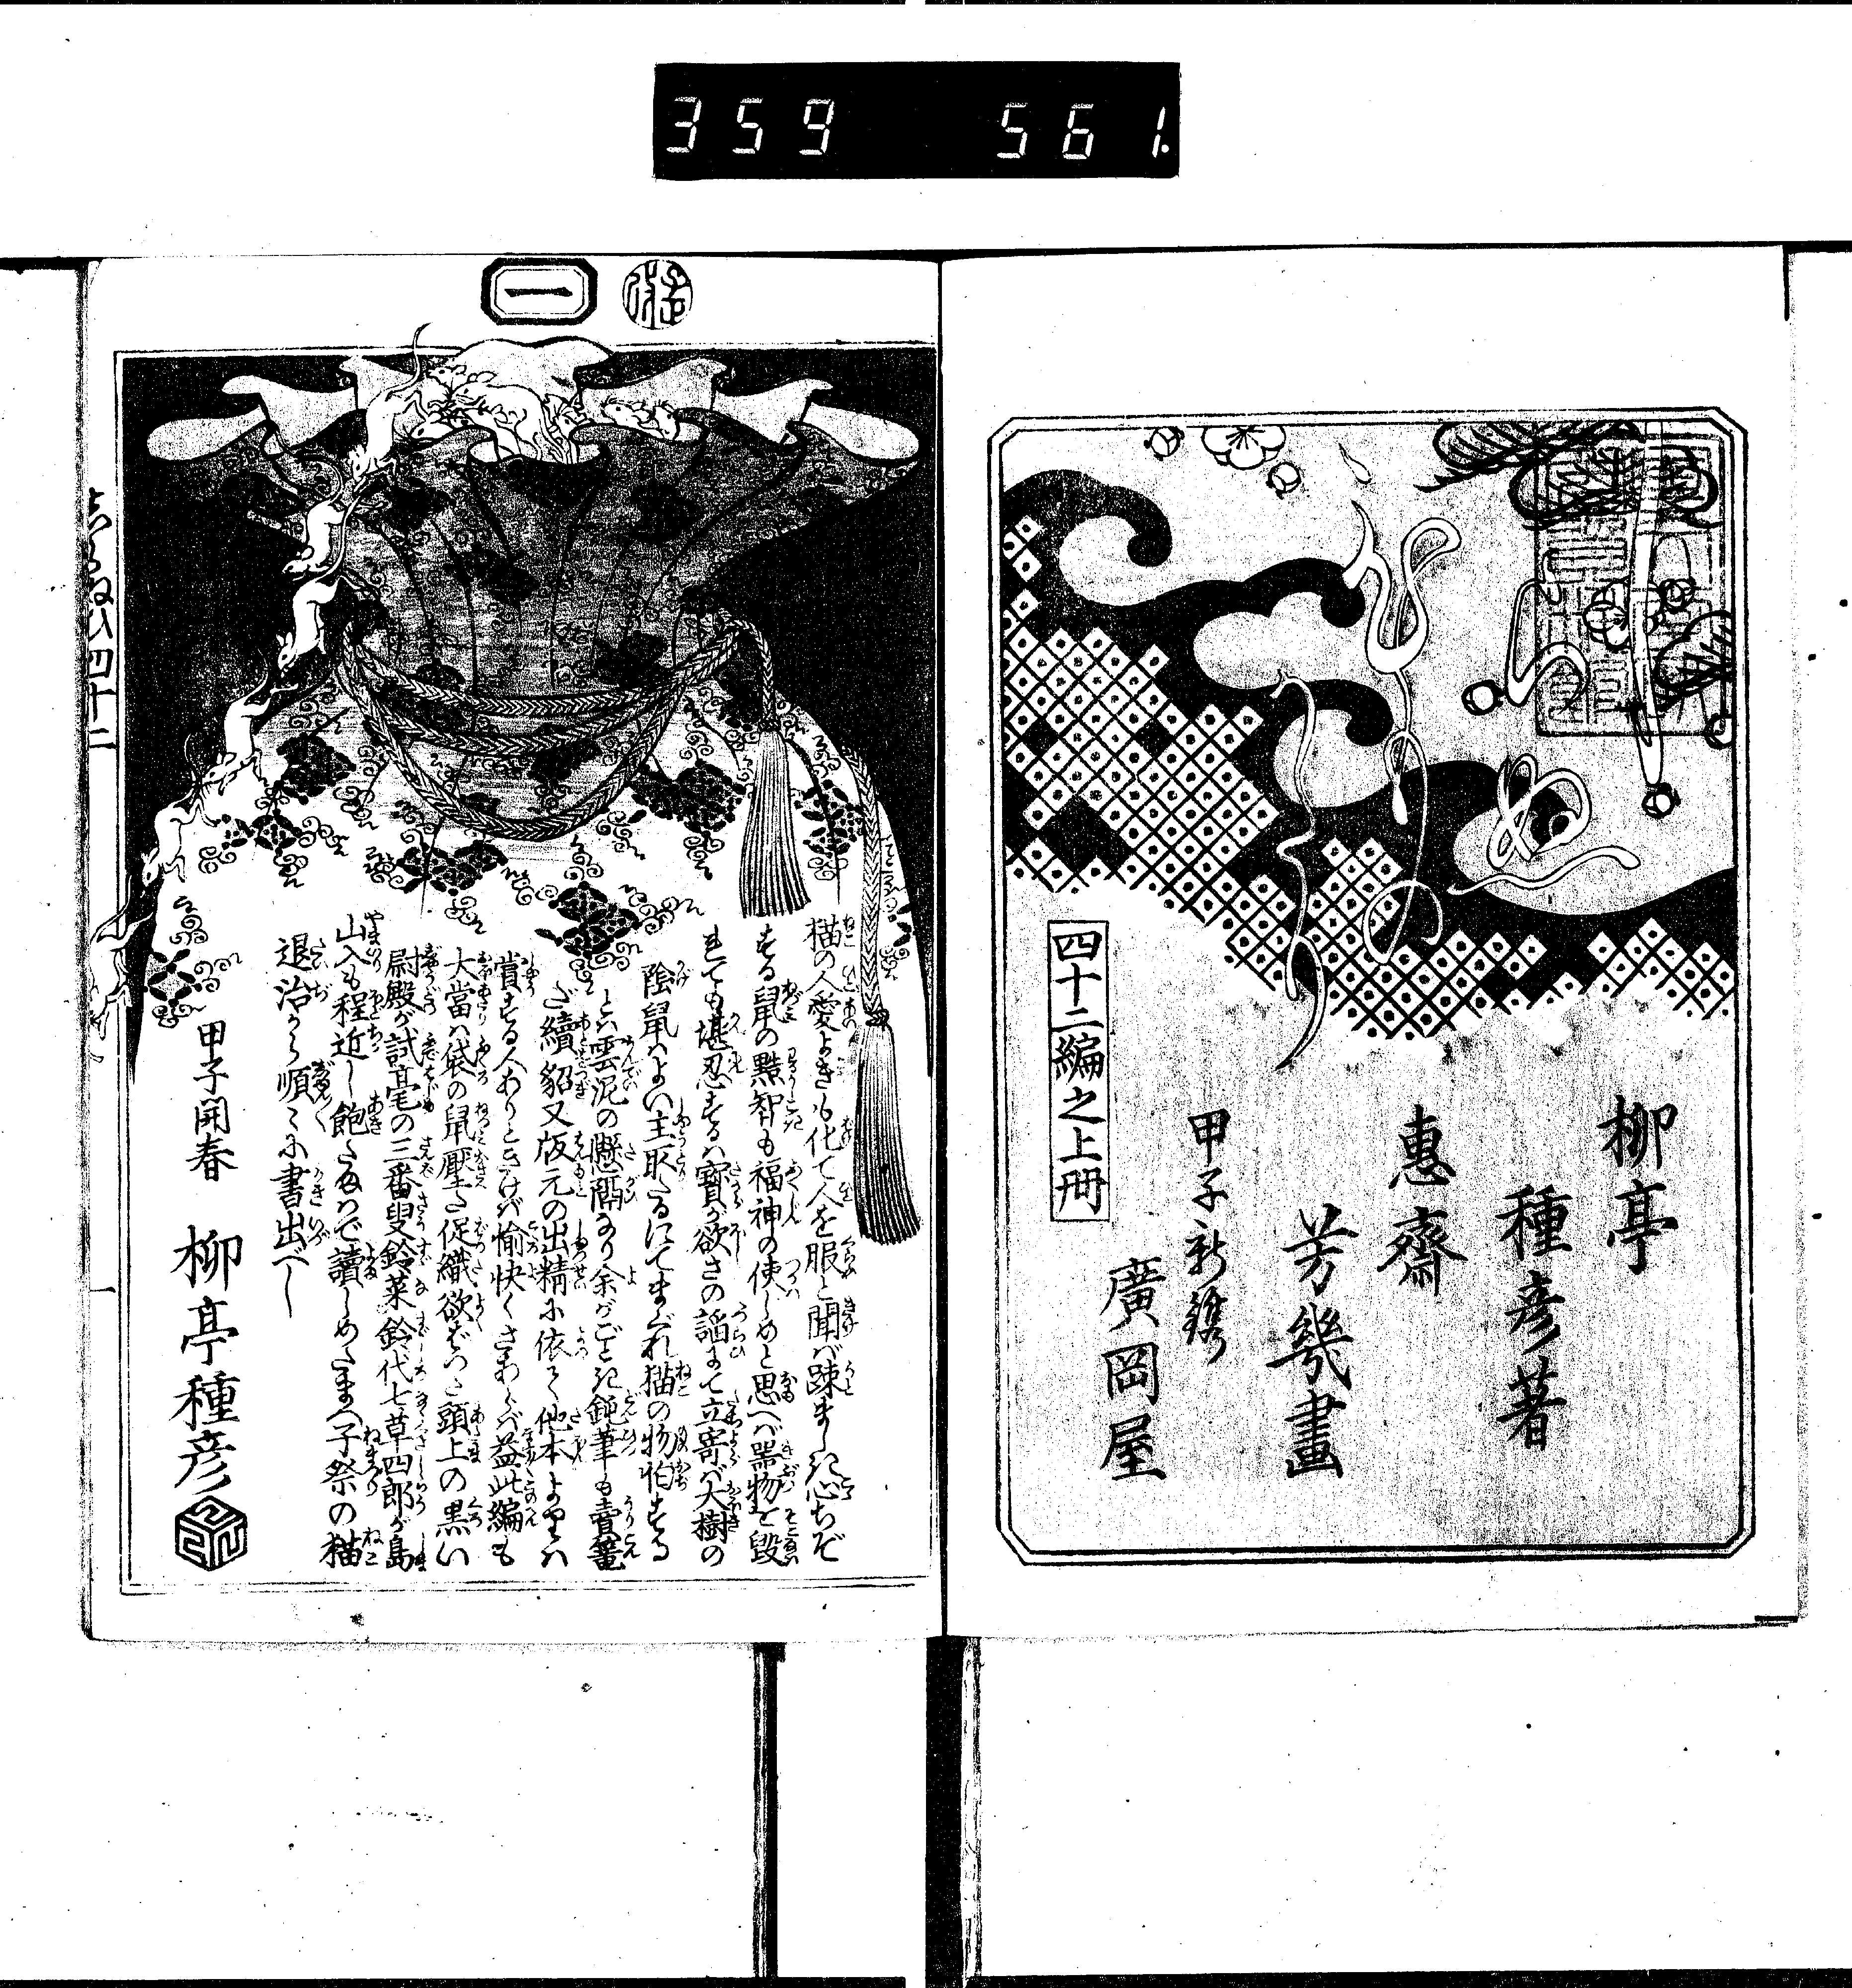 359 561.
柳亭
種彦著
惠齋
芳幾畫
甲子新鐫
廣岡屋
四十二編之上冊
一
猫の人愛よきも化て人を服と聞ば疎ましき心ちぞ
する鼠の黠智も福神の使しめと思へば噐物を毀
れても堪忍するハ寶が欲さの謟にて立寄ば大樹の
陰鼠ハよい主取たるにてまぐれ猫の物怕する
とハ雲泥の懸隔なり余がごとき鈍筆も賣籠
ど續貂又版元の出精に依て他本よりハ
賞する人ありときけば愉快くさあらば益此編も
大當ハ袋の鼠壓た促織欲ばつた頭上の黒い
尉殿が試毫の三番叟鈴菜鈴代七草四郎が島
山入も程近し飽たねへで讀しめたまへ子祭の猫
退治から順〻に書出べし
甲子開春
柳亭種彦
しらぬひ四十二
一